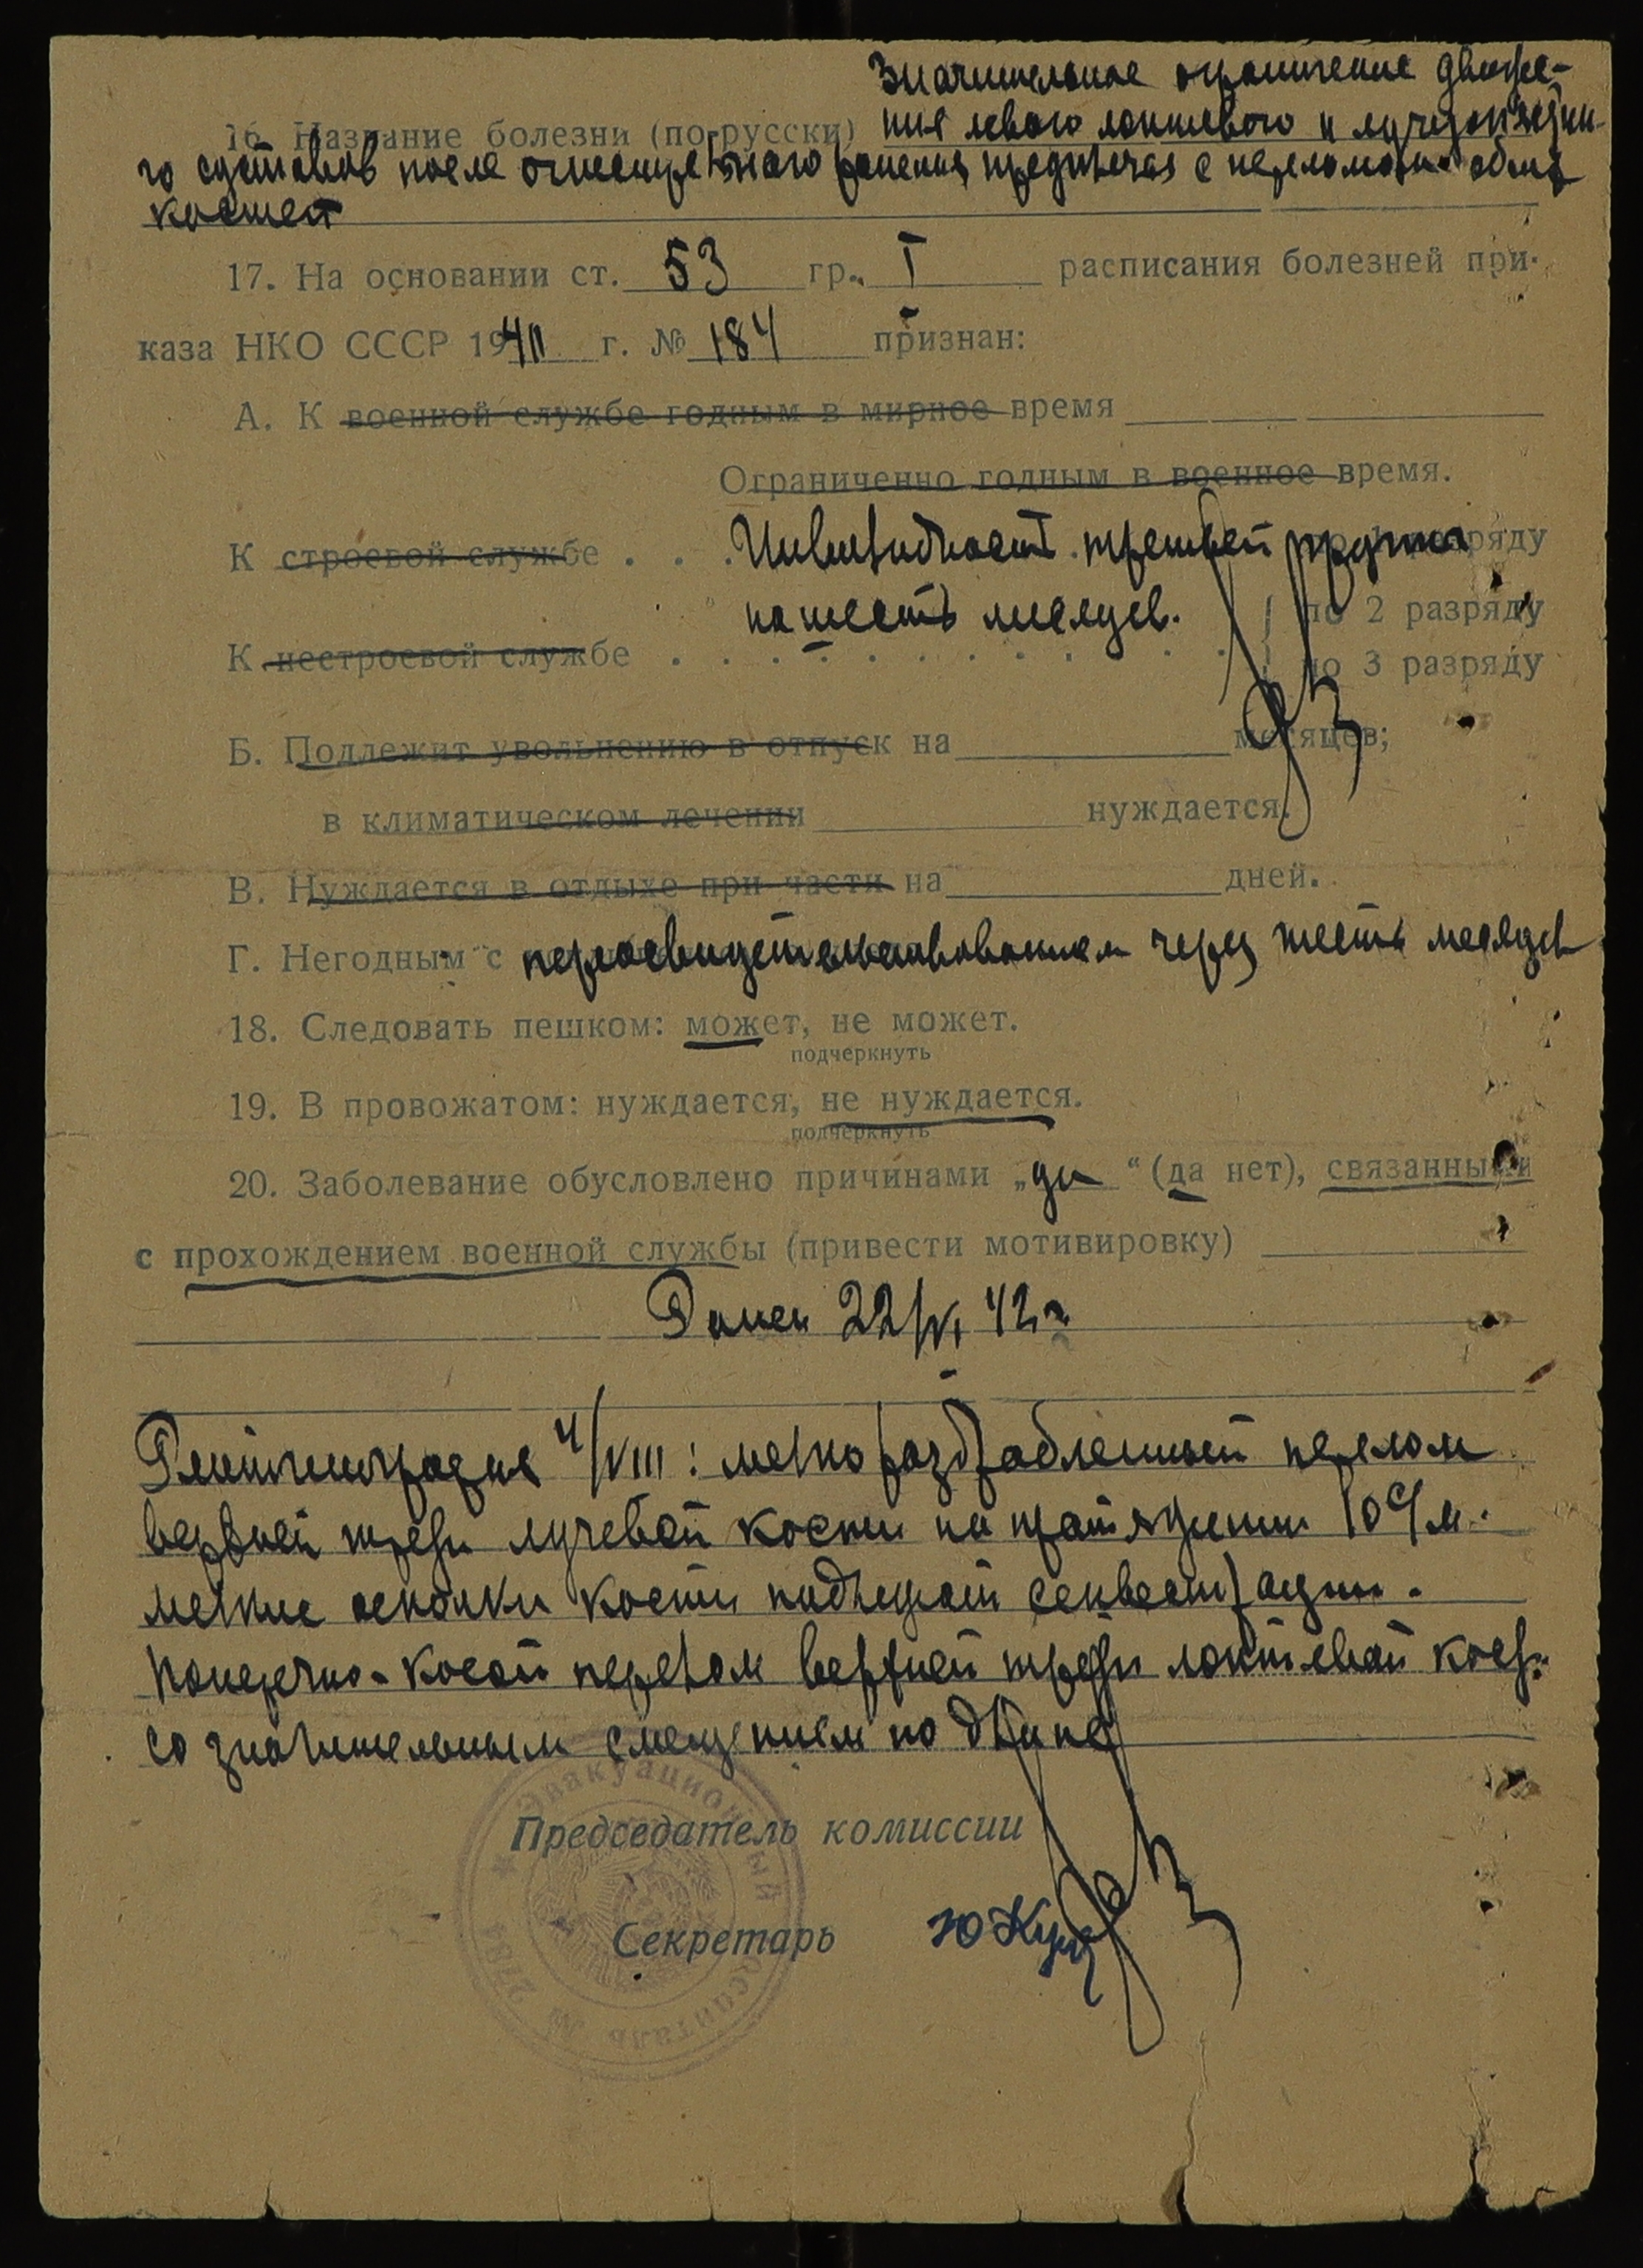 Значительное ограничение движе-
16. Название болезни (по-русски) ния левого локтевого и лучезапястно-
го суставов после огнестрельного ранения предплечья с переломом обеих
костей
17. На основании ст. 53 гр. I расписания болезней при-
каза НКО СССР 1940 г. № 184 признан:
А. К военной службе годным в мирное время
Ограниченно годным в военное время.
К строевой службе . . . Инвалидность третьей группы разряду
на шесть месяцев. по 2 разряду
К нестроевой службе . . . . . . . . . . . по 3 разряду
Б. Подлежит увольнению в отпуск на месяцев;
в климатическом лечении нуждается.
В. Нуждается в отдыхе при части на дней.
Г. Негодным с переосвидетельствованием через шесть месяцев
18. Следовать пешком: может, не может.
подчеркнуть
19. В провожатом: нуждается, не нуждается.
подчеркнуть
20. Заболевание обусловлено причинами „да“ (да нет), связанными
с прохождением военной службы (привести мотивировку)
Ранен 22/VI 42 г
Рентгенография 4/VIII: мелко раздробленный перелом
верхней трети лучевой кости на протяжении 10 с/м.
мелкие осколки кости подлежат секвестрации.
Поперечно-косой перелом верхней трети локтевой кости
со значительным смещением по длине
Председатель комиссии
Секретарь
Эвакуационный госпиталь № 2784